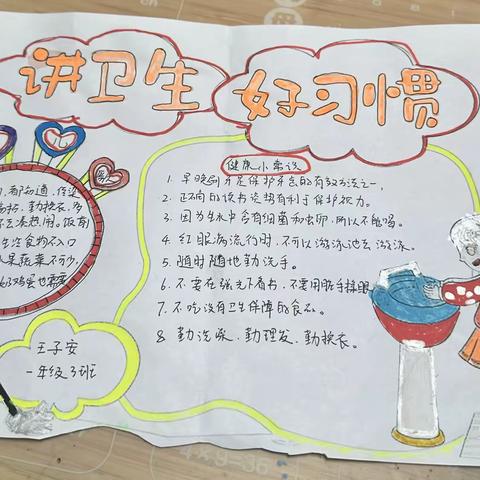 讲卫生
好习惯
健康小常识
1. 早晚刷牙是保护牙齿的有效方法之一,
2. 正确的读书姿势有利于保护视力。
3. 因为生水中含有细菌和虫卵,所以不能喝。
4. 红眼病流行时,不可以游泳池去游泳。
5. 随时随地勤洗手。
6. 不要在强光下看书、不要用脏手揉眼
7. 不吃没有卫生保障的食品。
8. 勤洗澡、勤理发、勤换衣。
勤换衣,
去凑热闹。饭前
生冷食物不入口
果蔬菜不可少,
王子安
一年级3班